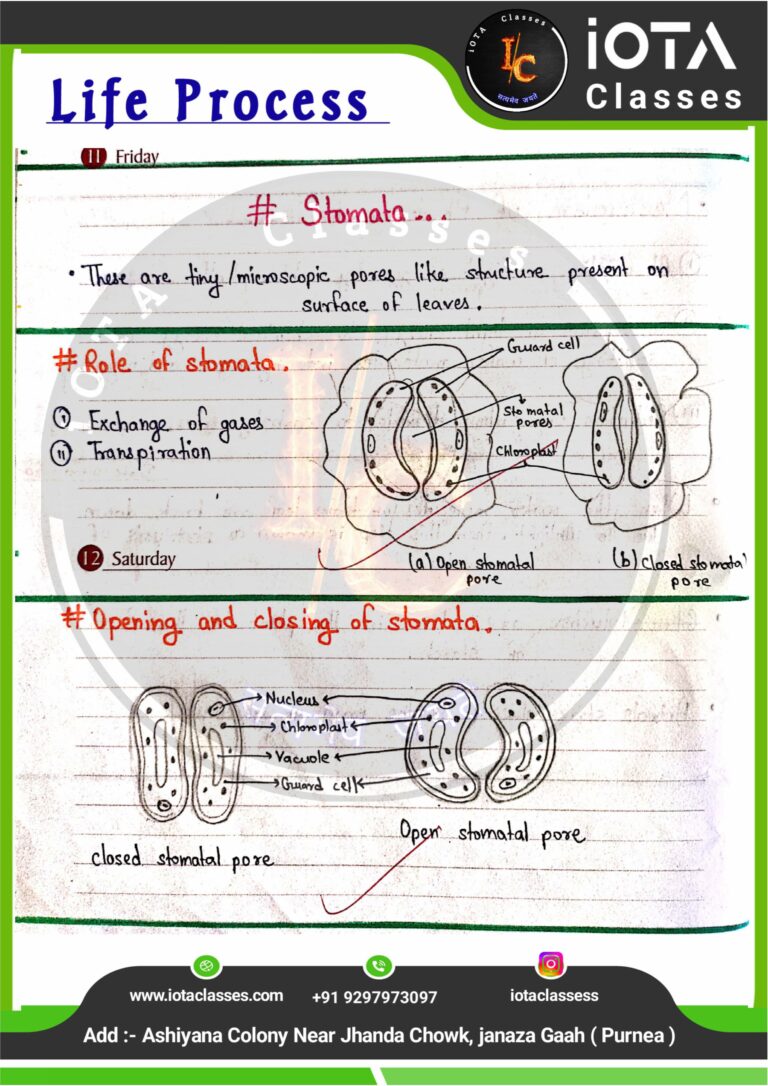 iOTA Classes
I/C
सत्यमेव जयते
iOTA
Classes
Life Process
11 Friday
# Stomata...
• These are tiny/microscopic pores like structure present on
surface of leaves.
# Role of stomata.
(i) Exchange of gases
(ii) Transpiration
Guard cell
Stomatal
pores
Chloroplast
(a) Open stomatal
pore
(b) Closed stomatal
pore
12 Saturday
# Opening and closing of stomata.
Nucleus
Chloroplast
Vacuole
Guard cell
closed stomatal pore
Open stomatal pore
IOTA Classes
www.iotaclasses.com
+91 9297973097
iotaclassess
Add :- Ashiyana Colony Near Jhanda Chowk, janaza Gaah ( Purnea )